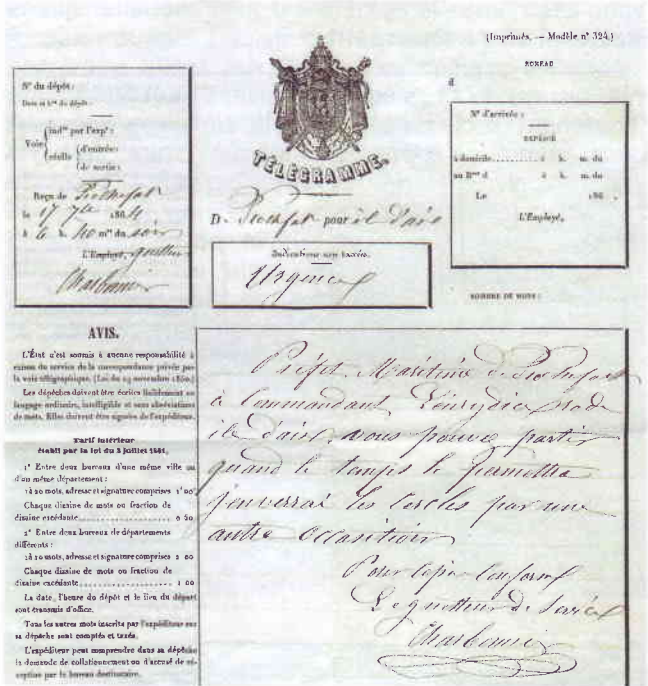 (Imprimés. — Modèle n° 324.)
BUREAU
d
N° du dépôt:
Date et h.re du dépôt:
Voie
ind.re par l'exp.r:
réelle
d'entrée:
de sortie:
Reçu de Rochefort
le 17 7bre 1864
à 6 h. 40 m.es du soir
L'Employé, guetteur
Charbonnier
TÉLÉGRAMME.
De Rochefort pour île d'aix
Indications non taxées.
Urgence
N° d'arrivée:
EXPÉDIÉ
à domicile........ à h. m. du
au B.au d à h. m. du
Le 186 .
L'Employé,
NOMBRE DE MOTS:
AVIS.
L'État n'est soumis à aucune responsabilité à
raison du service de la correspondance privée par
la voie télégraphique. (Loi du 29 novembre 1850.)
Les dépêches doivent être écrites lisiblement en
langage ordinaire, intelligible et sans abréviations
de mots. Elles doivent être signées de l'expéditeur.
Tarif intérieur
établi par la loi du 3 juillet 1861.
1° Entre deux bureaux d'une même ville ou
d'un même département:
1 à 20 mots, adresse et signature comprises 1f 00c
Chaque dizaine de mots ou fraction de
dizaine excédante.................. 0 50
2° Entre deux bureaux de départements
différents:
1 à 20 mots, adresse et signature comprises 2 00
Chaque dizaine de mots ou fraction de
dizaine excédante.................. 1 00
La date, l'heure du dépôt et le lieu du départ
sont transmis d'office.
Tous les autres mots inscrits par l'expéditeur sur
sa dépêche sont comptés et taxés.
L'expéditeur peut comprendre dans sa dépêche
la demande de collationnement ou d'accusé de ré-
ception par le bureau destinataire.
Préfet Maritime de Rochefort
à Commandant l'eurydice rade
île d'aix. vous pouvez partir
quand le temps le permettra
j'enverrai les cercles par une
autre occasition
Pour Copie Conforme
Le guetteur de Service
Charbonnier